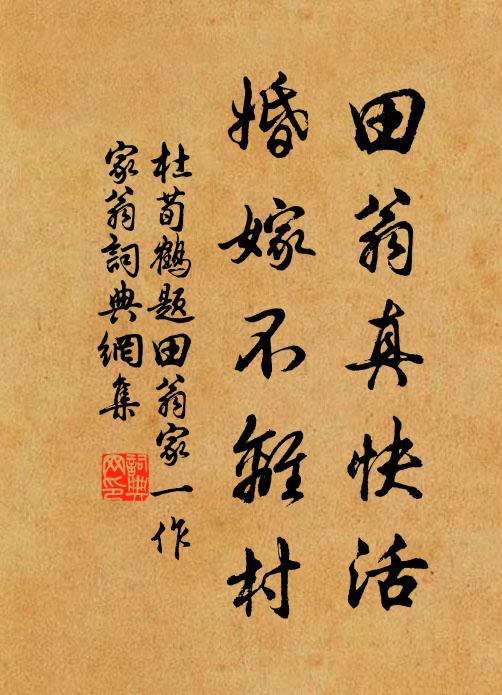 田翁真快活
婚嫁不離村
杜荀鶴題田翁家一作
家翁詞典網集
詞典
网印